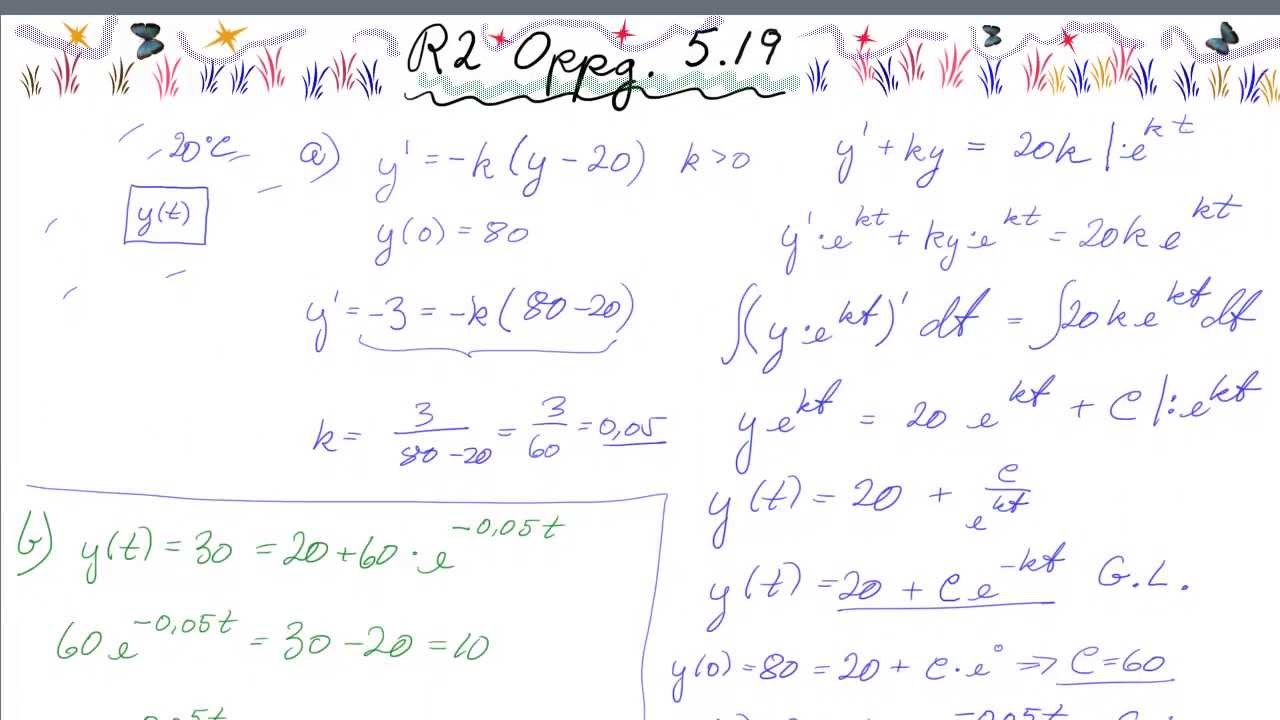 R2 Oppg. 5.19
20°C
y(t)
a) y' = -k(y - 20) k > 0
y(0) = 80
y' = -3 = -k(80 - 20)
k = 3/(80 - 20) = 3/60 = 0,05
y' + ky = 20k |·e^{kt}
y'·e^{kt} + ky·e^{kt} = 20k e^{kt}
∫(y·e^{kt})' dt = ∫20k e^{kt} dt
y e^{kt} = 20 e^{kt} + C |:e^{kt}
y(t) = 20 + C/e^{kt}
y(t) = 20 + C e^{-kt} G.L.
y(0) = 80 = 20 + C·e^0 => C = 60
b) y(t) = 30 = 20 + 60·e^{-0,05t}
60 e^{-0,05t} = 30 - 20 = 10